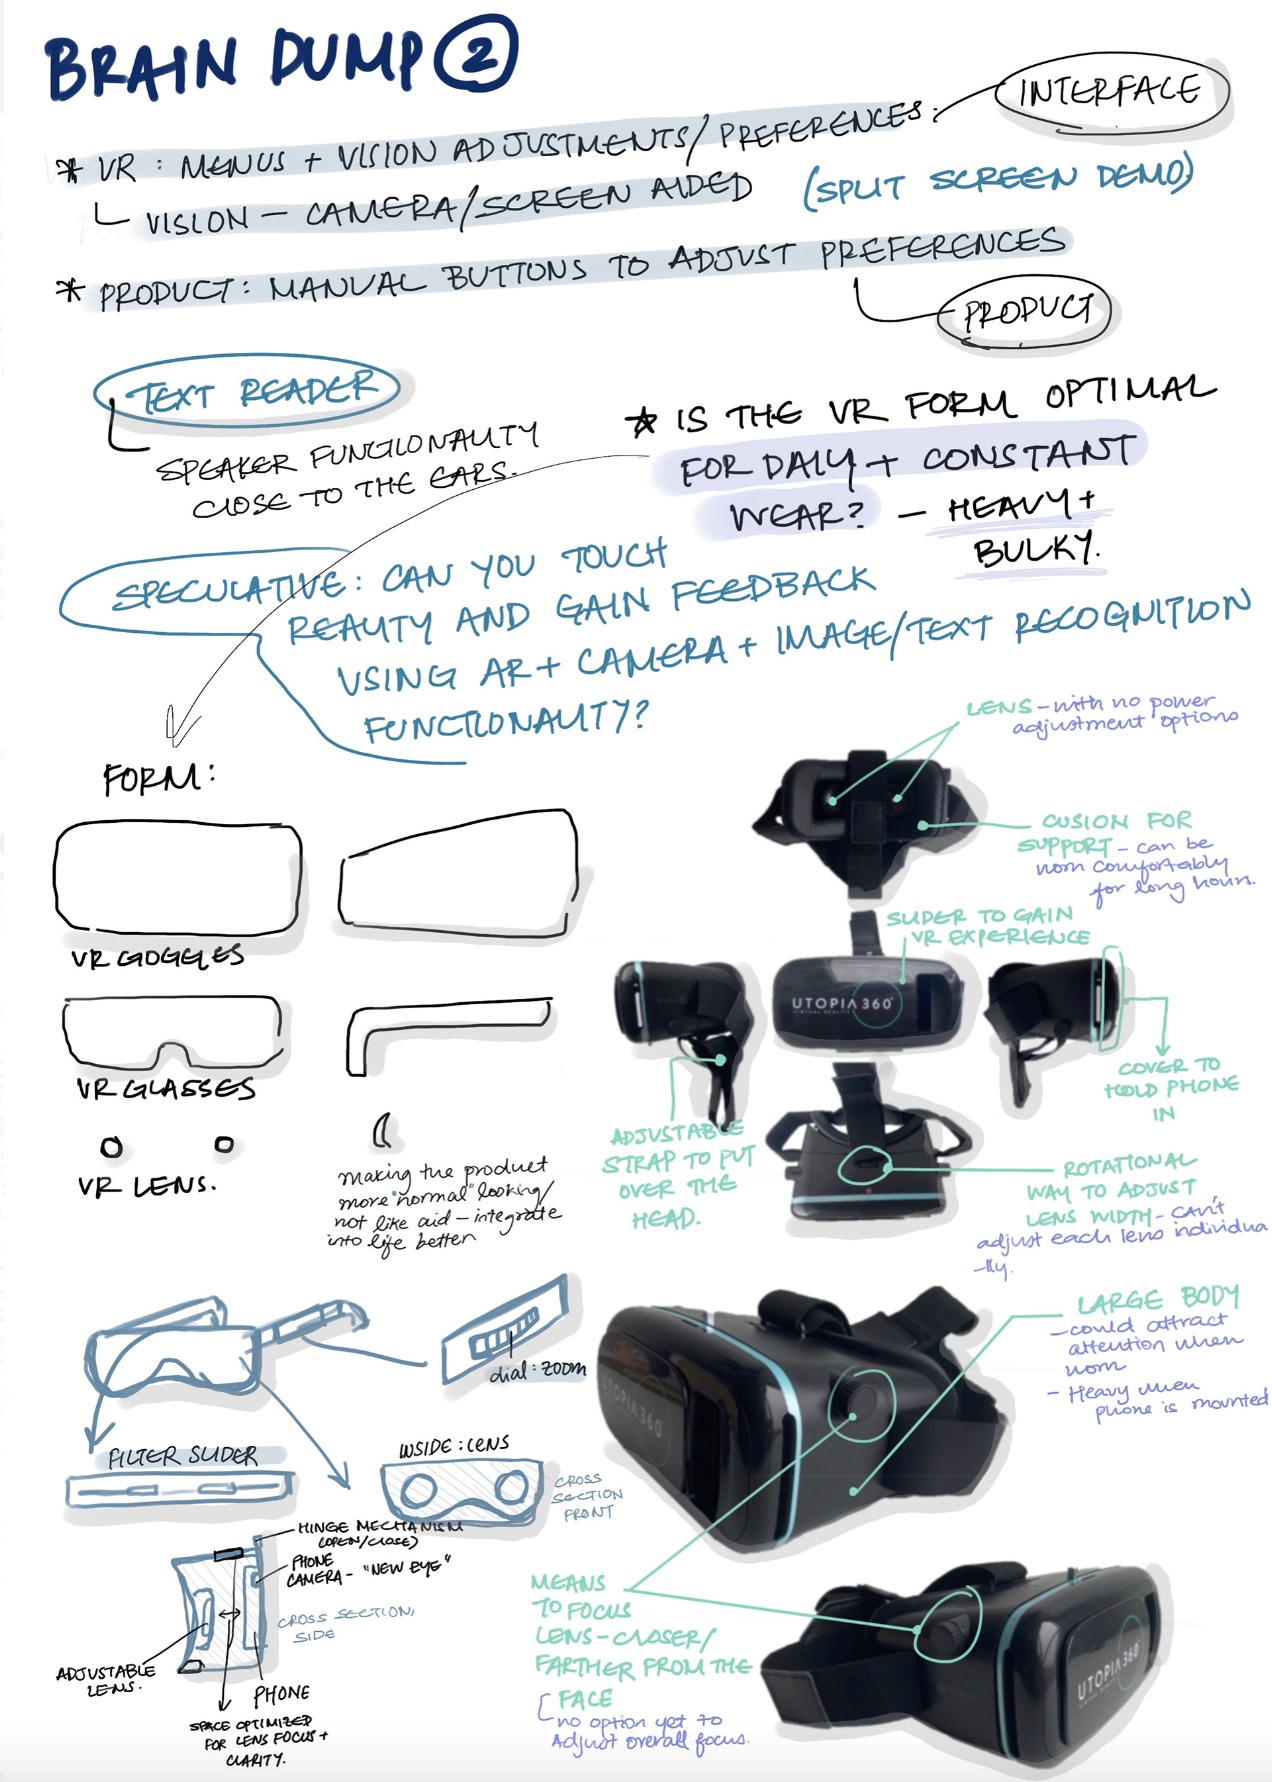 BRAIN DUMP 2
INTERFACE
* VR : MENUS + VISION ADJUSTMENTS/PREFERENCES:
VISION - CAMERA/SCREEN AIDED
(SPLIT SCREEN DEMO)
* PRODUCT: MANUAL BUTTONS TO ADJUST PREFERENCES
PRODUCT
TEXT READER
SPEAKER FUNCTIONALITY
CLOSE TO THE EARS.
* IS THE VR FORM OPTIMAL
FOR DAILY + CONSTANT
WEAR? - HEAVY +
BULKY.
SPECULATIVE: CAN YOU TOUCH
REALITY AND GAIN FEEDBACK
USING AR + CAMERA + IMAGE/TEXT RECOGNITION
FUNCTIONALITY?
FORM:
VR GOGGLES
VR GLASSES
VR LENS.
making the product
more "normal" looking/
not like aid - integrate
into life better
LENS - with no power
adjustment options
CUSION FOR
SUPPORT - can be
worn comfortably
for long hours.
SLIDER TO GAIN
VR EXPERIENCE
UTOPIA 360°
VIRTUAL REALITY
COVER TO
HOLD PHONE
IN
ADJUSTABLE
STRAP TO PUT
OVER THE
HEAD.
ROTATIONAL
WAY TO ADJUST
LENS WIDTH - can't
adjust each lens individua
-lly.
dial: zoom
FILTER SLIDER
INSIDE: LENS
CROSS
SECTION
FRONT
HINGE MECHANISM
(OPEN/CLOSE)
PHONE
CAMERA - "NEW EYE"
CROSS SECTION,
SIDE
ADJUSTABLE
LENS.
PHONE
SPACE OPTIMIZED
FOR LENS FOCUS +
CLARITY.
LARGE BODY
- could attract
attention when
worn
- Heavy when
phone is mounted
UTOPIA 360°
MEANS
TO FOCUS
LENS - CLOSER/
FARTHER FROM THE
FACE
no option yet to
Adjust overall focus.
UTOPIA 360°